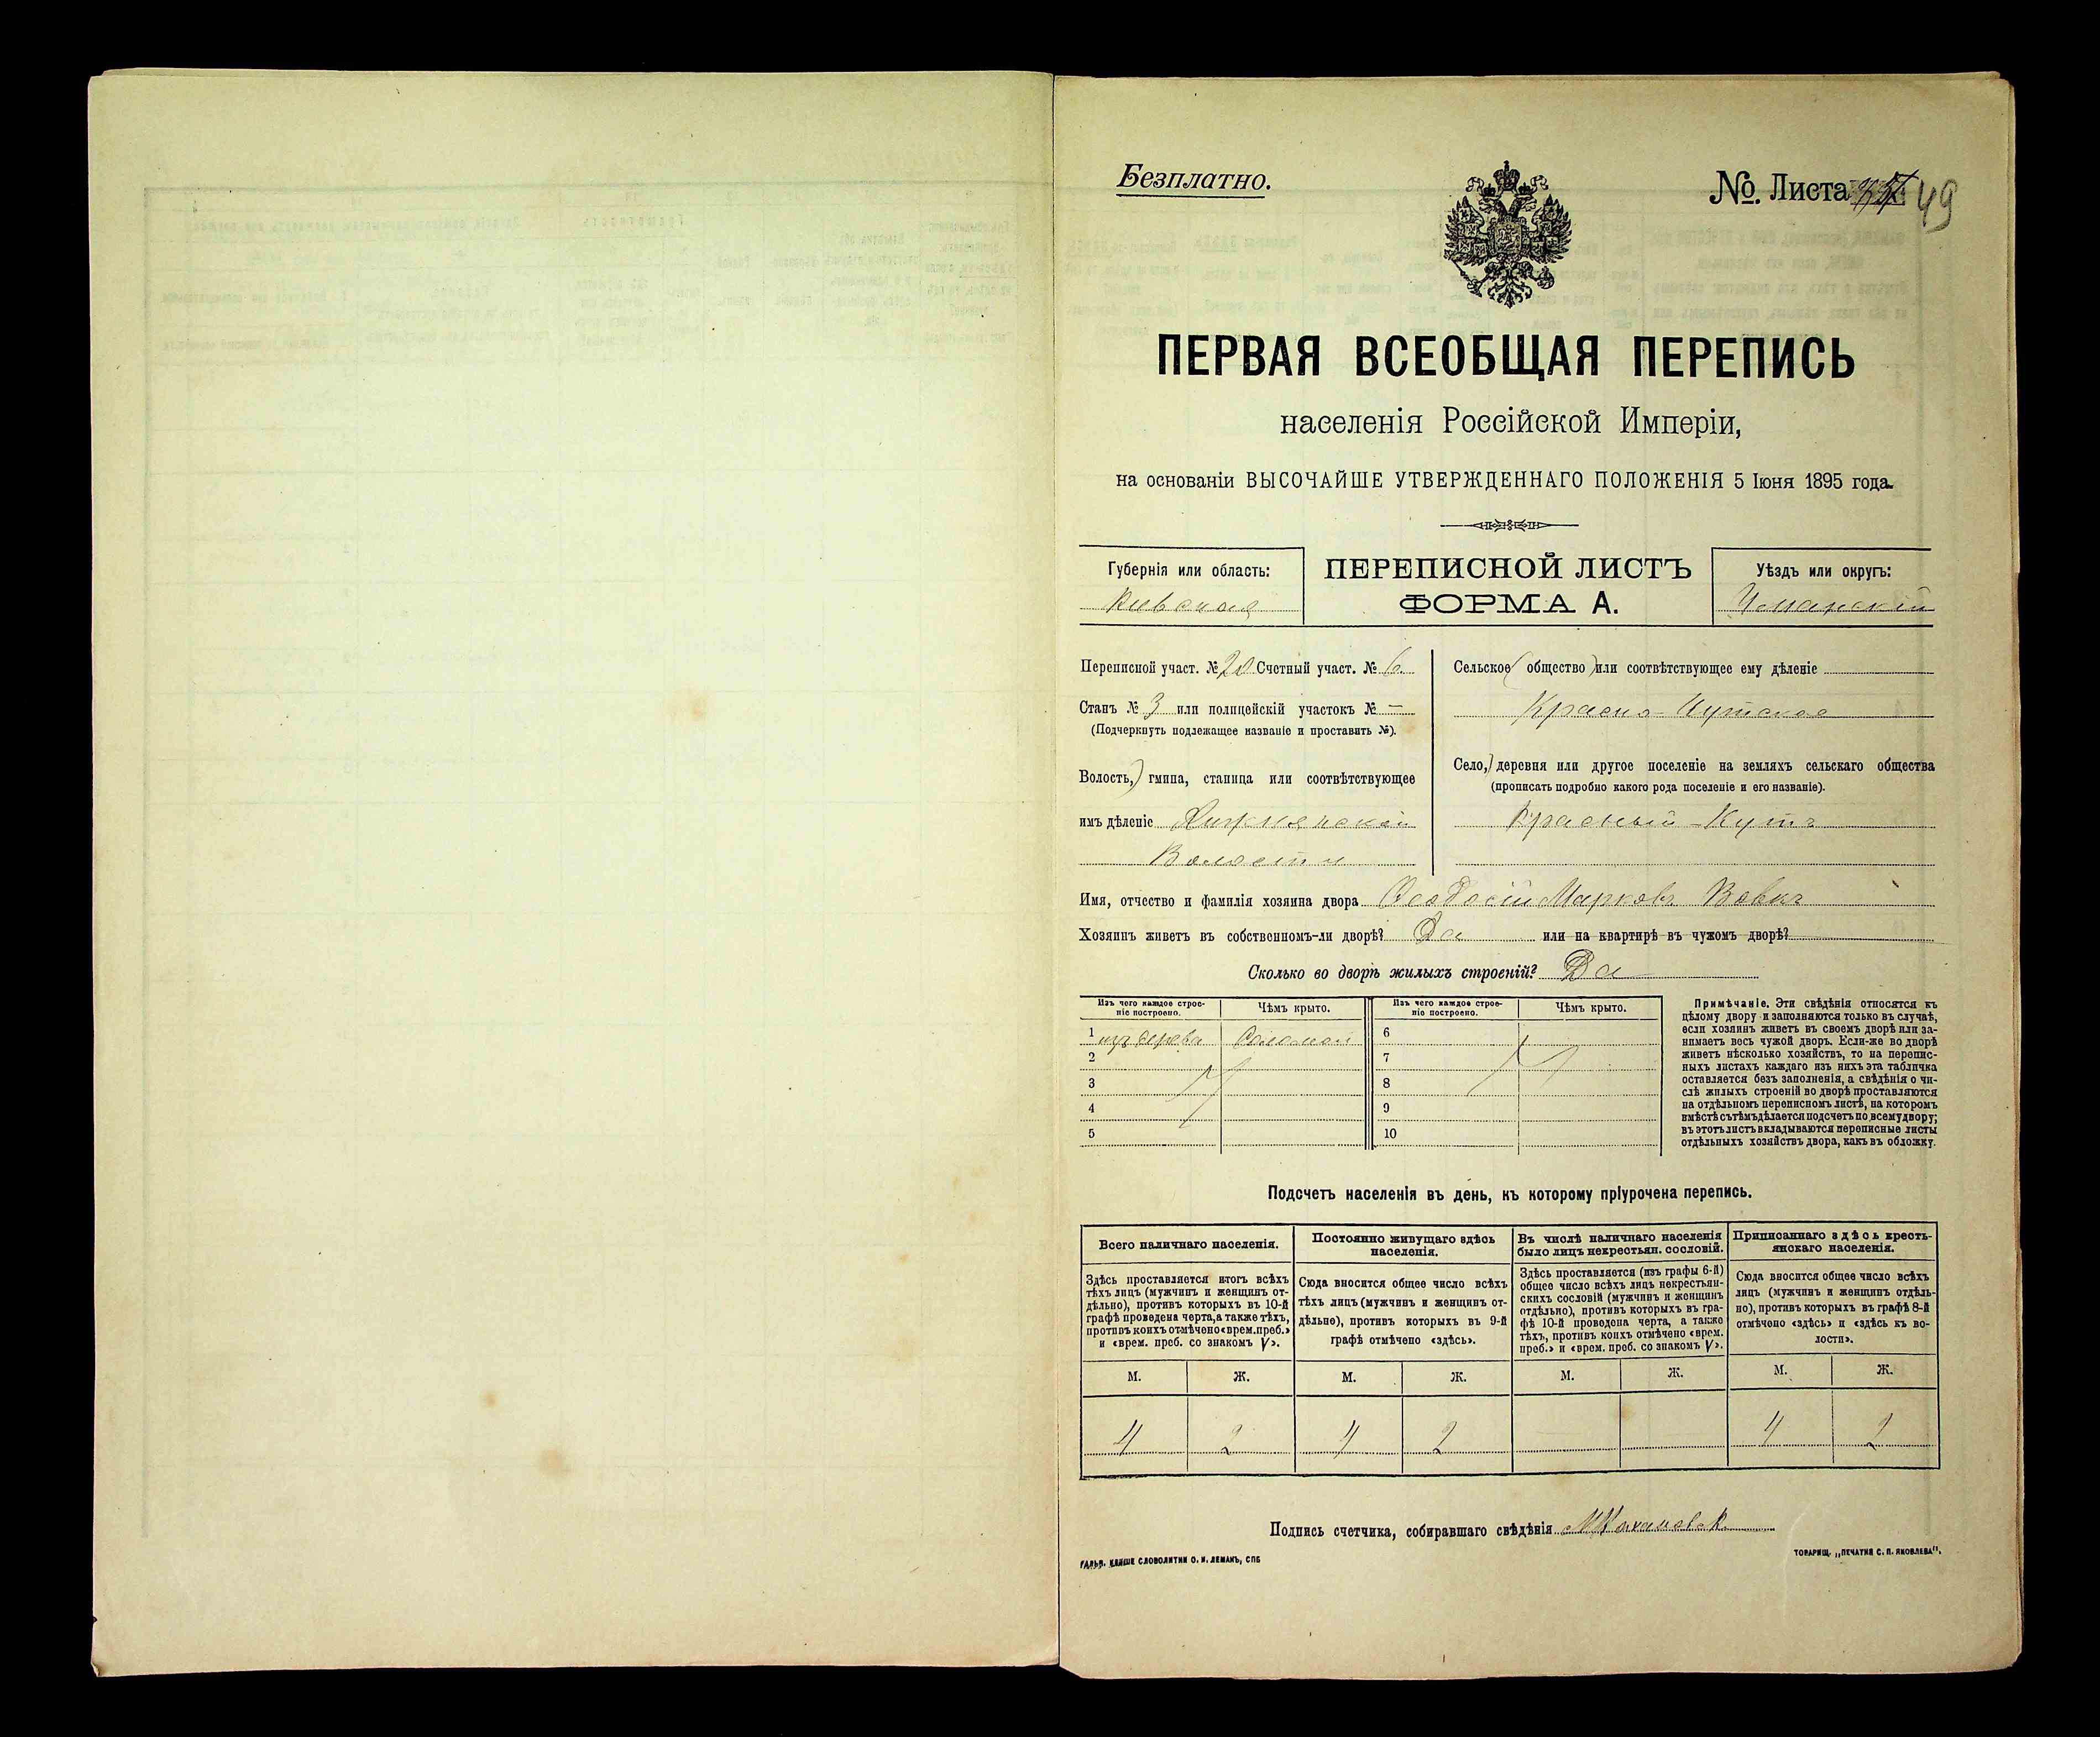 Безплатно.
№. Листа 49
ПЕРВАЯ ВСЕОБЩАЯ ПЕРЕПИСЬ
населенія Россійской Имперіи,
на основаніи ВЫСОЧАЙШЕ УТВЕРЖДЕННАГО ПОЛОЖЕНІЯ 5 Іюня 1895 года.
Губернія или область:
Киевская
ПЕРЕПИСНОЙ ЛИСТЪ
ФОРМА А.
Уѣздъ или округъ:
Уманскій
Переписной участ. № 20 Счетный участ. № 6
Станъ № 3 или полицейскій участокъ № —
(Подчеркнуть подлежащее названіе и проставить №).
Волость,) гмина, станица или соотвѣтствующее
имъ дѣленіе
Волости
Сельское (общество) или соотвѣтствующее ему дѣленіе
Красно-Кутское
Село,) деревня или другое поселеніе на земляхъ сельскаго общества
(прописать подробно какого рода поселеніе и его названіе).
Красный-Кутъ
Имя, отчество и фамилія хозяина двора Ѳеодосій Марковъ Вовкъ
Хозяинъ живетъ въ собственномъ-ли дворѣ? Да или на квартирѣ въ чужомъ дворѣ?
Сколько во дворѣ жилыхъ строеній? Да
Изъ чего каждое строе-
ніе построено.
Чѣмъ крыто.
1 изъ дерева Соломой
2
3
4
5
Изъ чего каждое строе-
ніе построено.
Чѣмъ крыто.
6
7
8
9
10
Примѣчаніе. Эти свѣдѣнія относятся къ
цѣлому двору и заполняются только въ случаѣ,
если хозяинъ живетъ въ своемъ дворѣ или за-
нимаетъ весь чужой дворъ. Если-же во дворѣ
живетъ нѣсколько хозяйствъ, то на перепис-
ныхъ листахъ каждаго изъ нихъ эта табличка
оставляется безъ заполненія, а свѣдѣнія о чи-
слѣ жилыхъ строеній во дворѣ проставляются
на отдѣльномъ переписномъ листѣ, на которомъ
вмѣстѣ съ тѣмъ дѣлается подсчетъ по всему двору;
въ этотъ листъ вкладываются переписные листы
отдѣльныхъ хозяйствъ двора, какъ въ обложку.
Подсчетъ населенія въ день, къ которому пріурочена перепись.
Всего наличнаго населенія.
Здѣсь проставляется итогъ всѣхъ
тѣхъ лицъ (мужчинъ и женщинъ от-
дѣльно), противъ которыхъ въ 10-й
графѣ проведена черта, а также тѣхъ,
противъ коихъ отмѣчено «врем. преб.»
и «врем. преб. со знакомъ V».
М. Ж.
4 2
Постоянно живущаго здѣсь
населенія.
Сюда вносится общее число всѣхъ
тѣхъ лицъ (мужчинъ и женщинъ от-
дѣльно), противъ которыхъ въ 9-й
графѣ отмѣчено «здѣсь».
М. Ж.
4 2
Въ числѣ наличнаго населенія
было лицъ некрестьян. сословій.
Здѣсь проставляется (изъ графы 6-й)
общее число всѣхъ лицъ некрестьян-
скихъ сословій (мужчинъ и женщинъ
отдѣльно), противъ которыхъ въ гра-
фѣ 10-й проведена черта, а также
тѣхъ, противъ коихъ отмѣчено «врем.
преб.» и «врем. преб. со знакомъ V».
М. Ж.
Приписаннаго здѣсь кресть-
янскаго населенія.
Сюда вносится общее число всѣхъ
лицъ (мужчинъ и женщинъ отдѣль-
но), противъ которыхъ въ графѣ 8-й
отмѣчено «здѣсь» и «здѣсь къ во-
лости».
М. Ж.
4 2
Подпись счетчика, собиравшаго свѣдѣнія
ГАЛЬВ. КЛИШЕ СЛОВОЛИТНИ О. И. ЛЕМАНЪ, СПБ
ТОВАРИЩ. „ПЕЧАТНЯ С. П. ЯКОВЛЕВА".